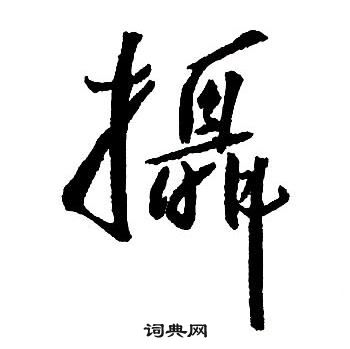 攝
词典网